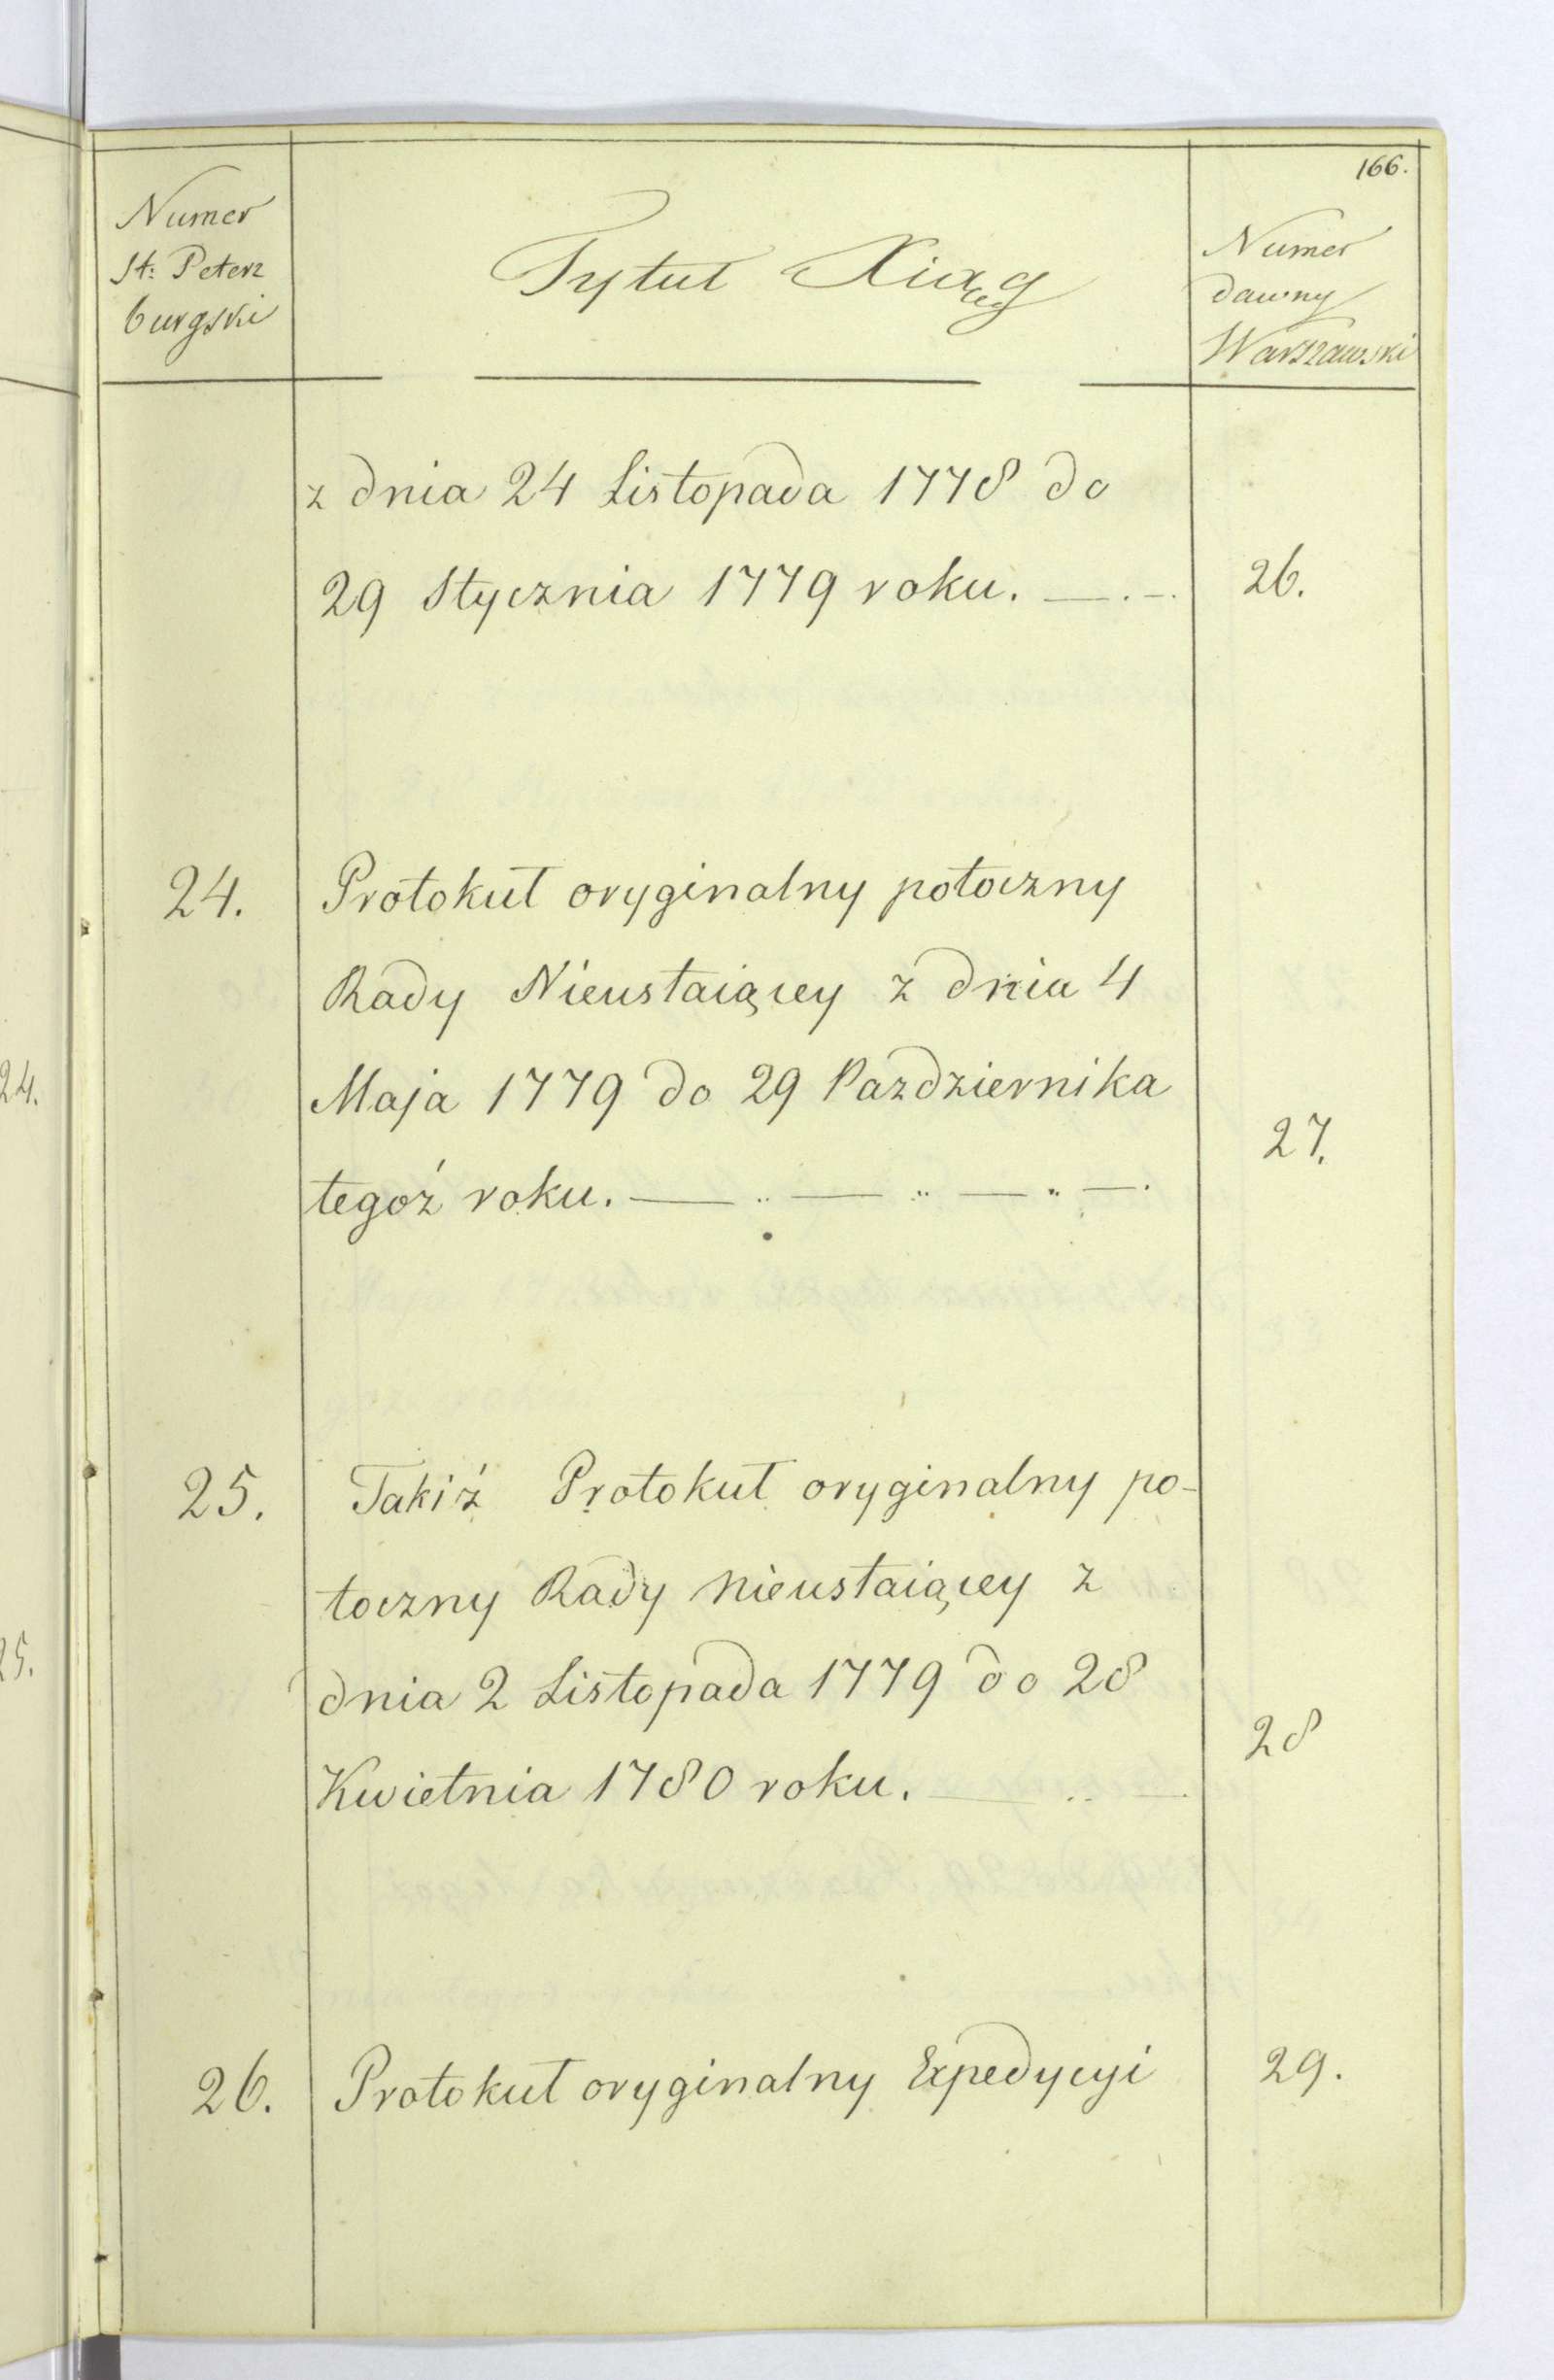 166.
Numer
St: Peterz
burgski
Tytuł Xiąg
Numer
dawny
Warszawski
z dnia 24 Listopada 1778 do
29 Stycznia 1779 roku. 26.
24. Protokuł oryginalny potoczny
Rady Nieustaiącey z dnia 4
Maja 1779 do 29 Pazdziernika
27.
tegoż roku.
25. Takiż Protokuł oryginalny po-
toczny Rady Nieustaiącey z
dnia 2 Listopada 1779 do 28
28
Kwietnia 1780 roku.
26. Protokuł oryginalny Expedycyi 29.
24.
25.